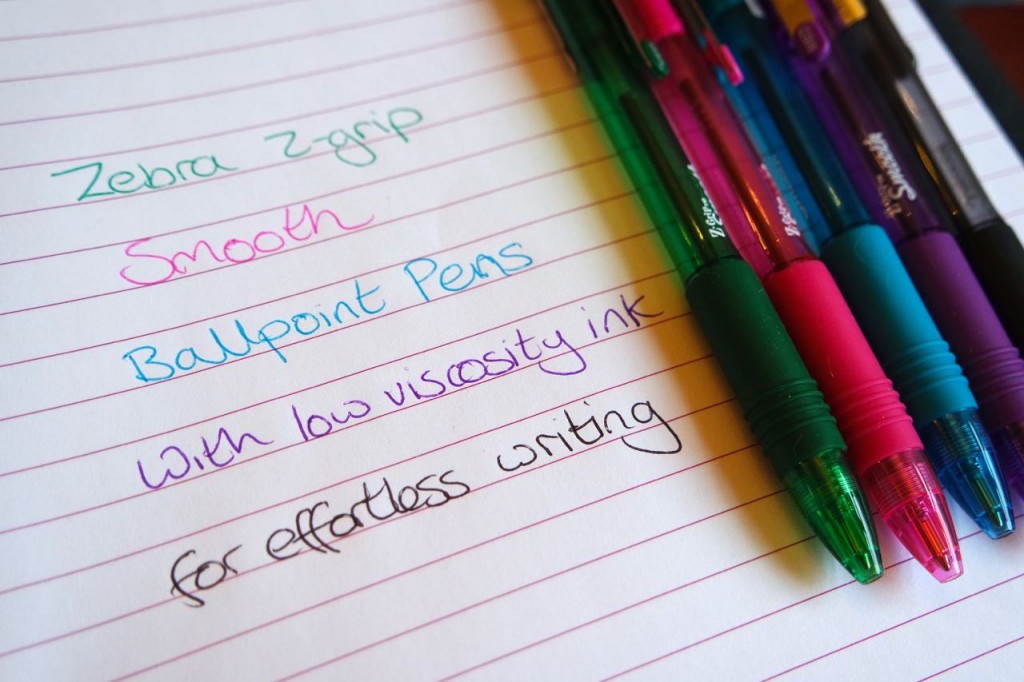 Zebra Z-grip
Smooth
Ballpoint Pens
With low viscosity ink
for effortless writing
Z-Grip
Smooth